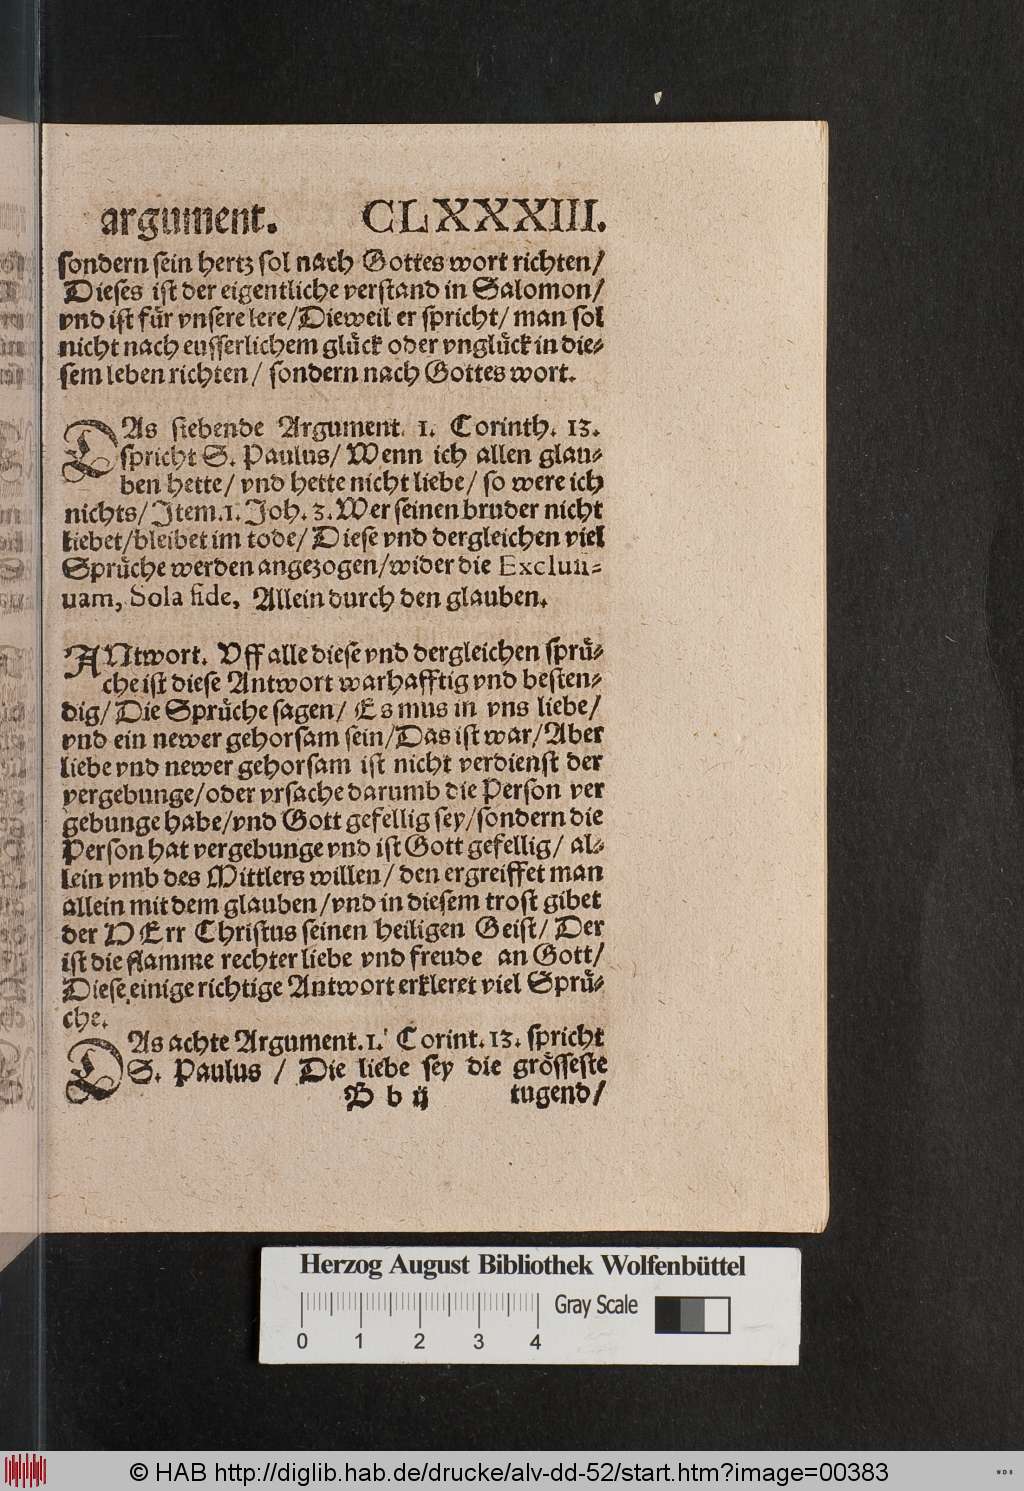 argument. CLXXXIII.
sondern sein hertz sol nach Gottes wort richten/
Dieses ist der eigentliche verstand in Salomon/
vnd ist für vnsere lere/Dieweil er spricht/ man sol
nicht nach eusserlichem glück oder vnglück in die-
sem leben richten/ sondern nach Gottes wort.
DAs siebende Argument. 1. Corinth. 13.
spricht S. Paulus/ Wenn ich allen glau-
ben hette/ vnd hette nicht liebe/ so were ich
nichts/ Jtem. 1. Joh. 3. Wer seinen bruder nicht
liebet/bleibet im tode/ Diese vnd dergleichen viel
Sprüche werden angezogen/wider die Exclusi-
uam, Sola fide, Allein durch den glauben.
ANtwort. Vff alle diese vnd dergleichen sprü-
che ist diese Antwort warhafftig vnd besten-
dig/ Die Sprüche sagen/ Es mus in vns liebe/
vnd ein newer gehorsam sein/Das ist war/Aber
liebe vnd newer gehorsam ist nicht verdienst der
vergebunge/oder vrsache darumb die Person ver
gebunge habe/vnd Gott gefellig sey/sondern die
Person hat vergebunge vnd ist Gott gefellig/ al-
lein vmb des Mittlers willen/ den ergreiffet man
allein mit dem glauben/vnd in diesem trost gibet
der HErr Christus seinen heiligen Geist/ Der
ist die flamme rechter liebe vnd freude an Gott/
Diese einige richtige Antwort erkleret viel Sprü-
che.
DAs achte Argument. 1. Corint. 13. spricht
S. Paulus / Die liebe sey die grösseste
B b ij tugend/
Herzog August Bibliothek Wolfenbüttel
0 1 2 3 4 Gray Scale
© HAB http://diglib.hab.de/drucke/alv-dd-52/start.htm?image=00383